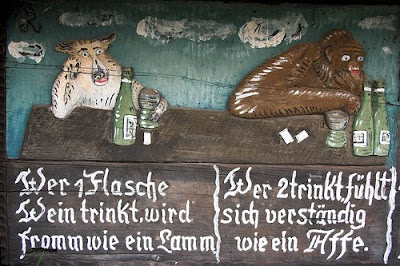 Wer 1 Flasche
Wein trinkt, wird
fromm wie ein Lamm
Wer 2 trinkt, fühlt
sich verständig
wie ein Affe.